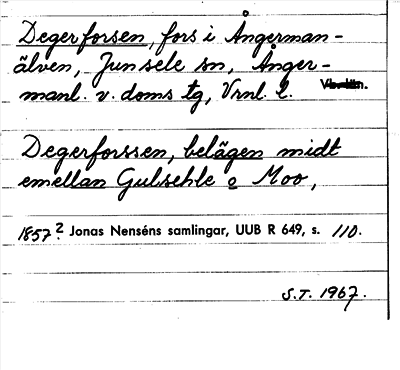 Degerforsen, fors i Ångerman-
älven, Junsele sn, Ånger-
manl. v. doms tg, Vrnl. l.
Degerforssen, belägen midt
emellan Gulsehle o Moo,
1857? Jonas Nenséns samlingar, UUB R 649, s. 110.
S.T. 1967.